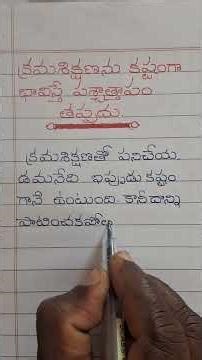 క్రమశిక్షణను కష్టంగా
భావిస్తే పశ్చాత్తాపం
తప్పదు.
క్రమశిక్షణతో పనిచేయ
డమనేది ఎప్పుడు కష్టం
గానే ఉంటుంది కానీదాన్ని
పాటించకపోతే